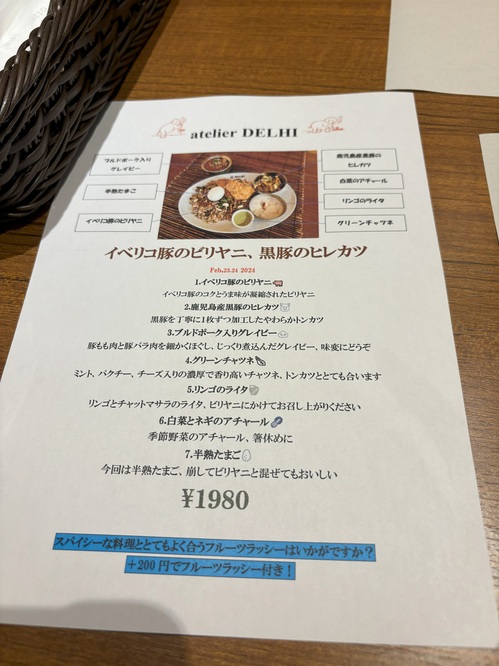 atelier DELHI
プルドポーク入り
グレイビー
半熟たまご
イベリコ豚のビリヤニ
鹿児島産黒豚の
ヒレカツ
白菜のアチャール
リンゴのライタ
グリーンチャツネ
イベリコ豚のビリヤニ、黒豚のヒレカツ
Feb.23.24 2024
1.イベリコ豚のビリヤニ
イベリコ豚のコクとうま味が凝縮されたビリヤニ
2.鹿児島産黒豚のヒレカツ
黒豚を丁寧に1枚ずつ加工したやわらかトンカツ
3.プルドポーク入りグレイビー
豚もも肉と豚バラ肉を細かくほぐし、じっくり煮込んだグレイビー、味変にどうぞ
4.グリーンチャツネ
ミント、パクチー、チーズ入りの濃厚で香り高いチャツネ、トンカツととても合います
5.リンゴのライタ
リンゴとチャットマサラのライタ、ビリヤニにかけてお召し上がりください
6.白菜とネギのアチャール
季節野菜のアチャール、箸休めに
7.半熟たまご
今回は半熟たまご、崩してビリヤニと混ぜてもおいしい
¥1980
スパイシーな料理ととてもよく合うフルーツラッシーはいかがですか？
＋200円でフルーツラッシー付き！